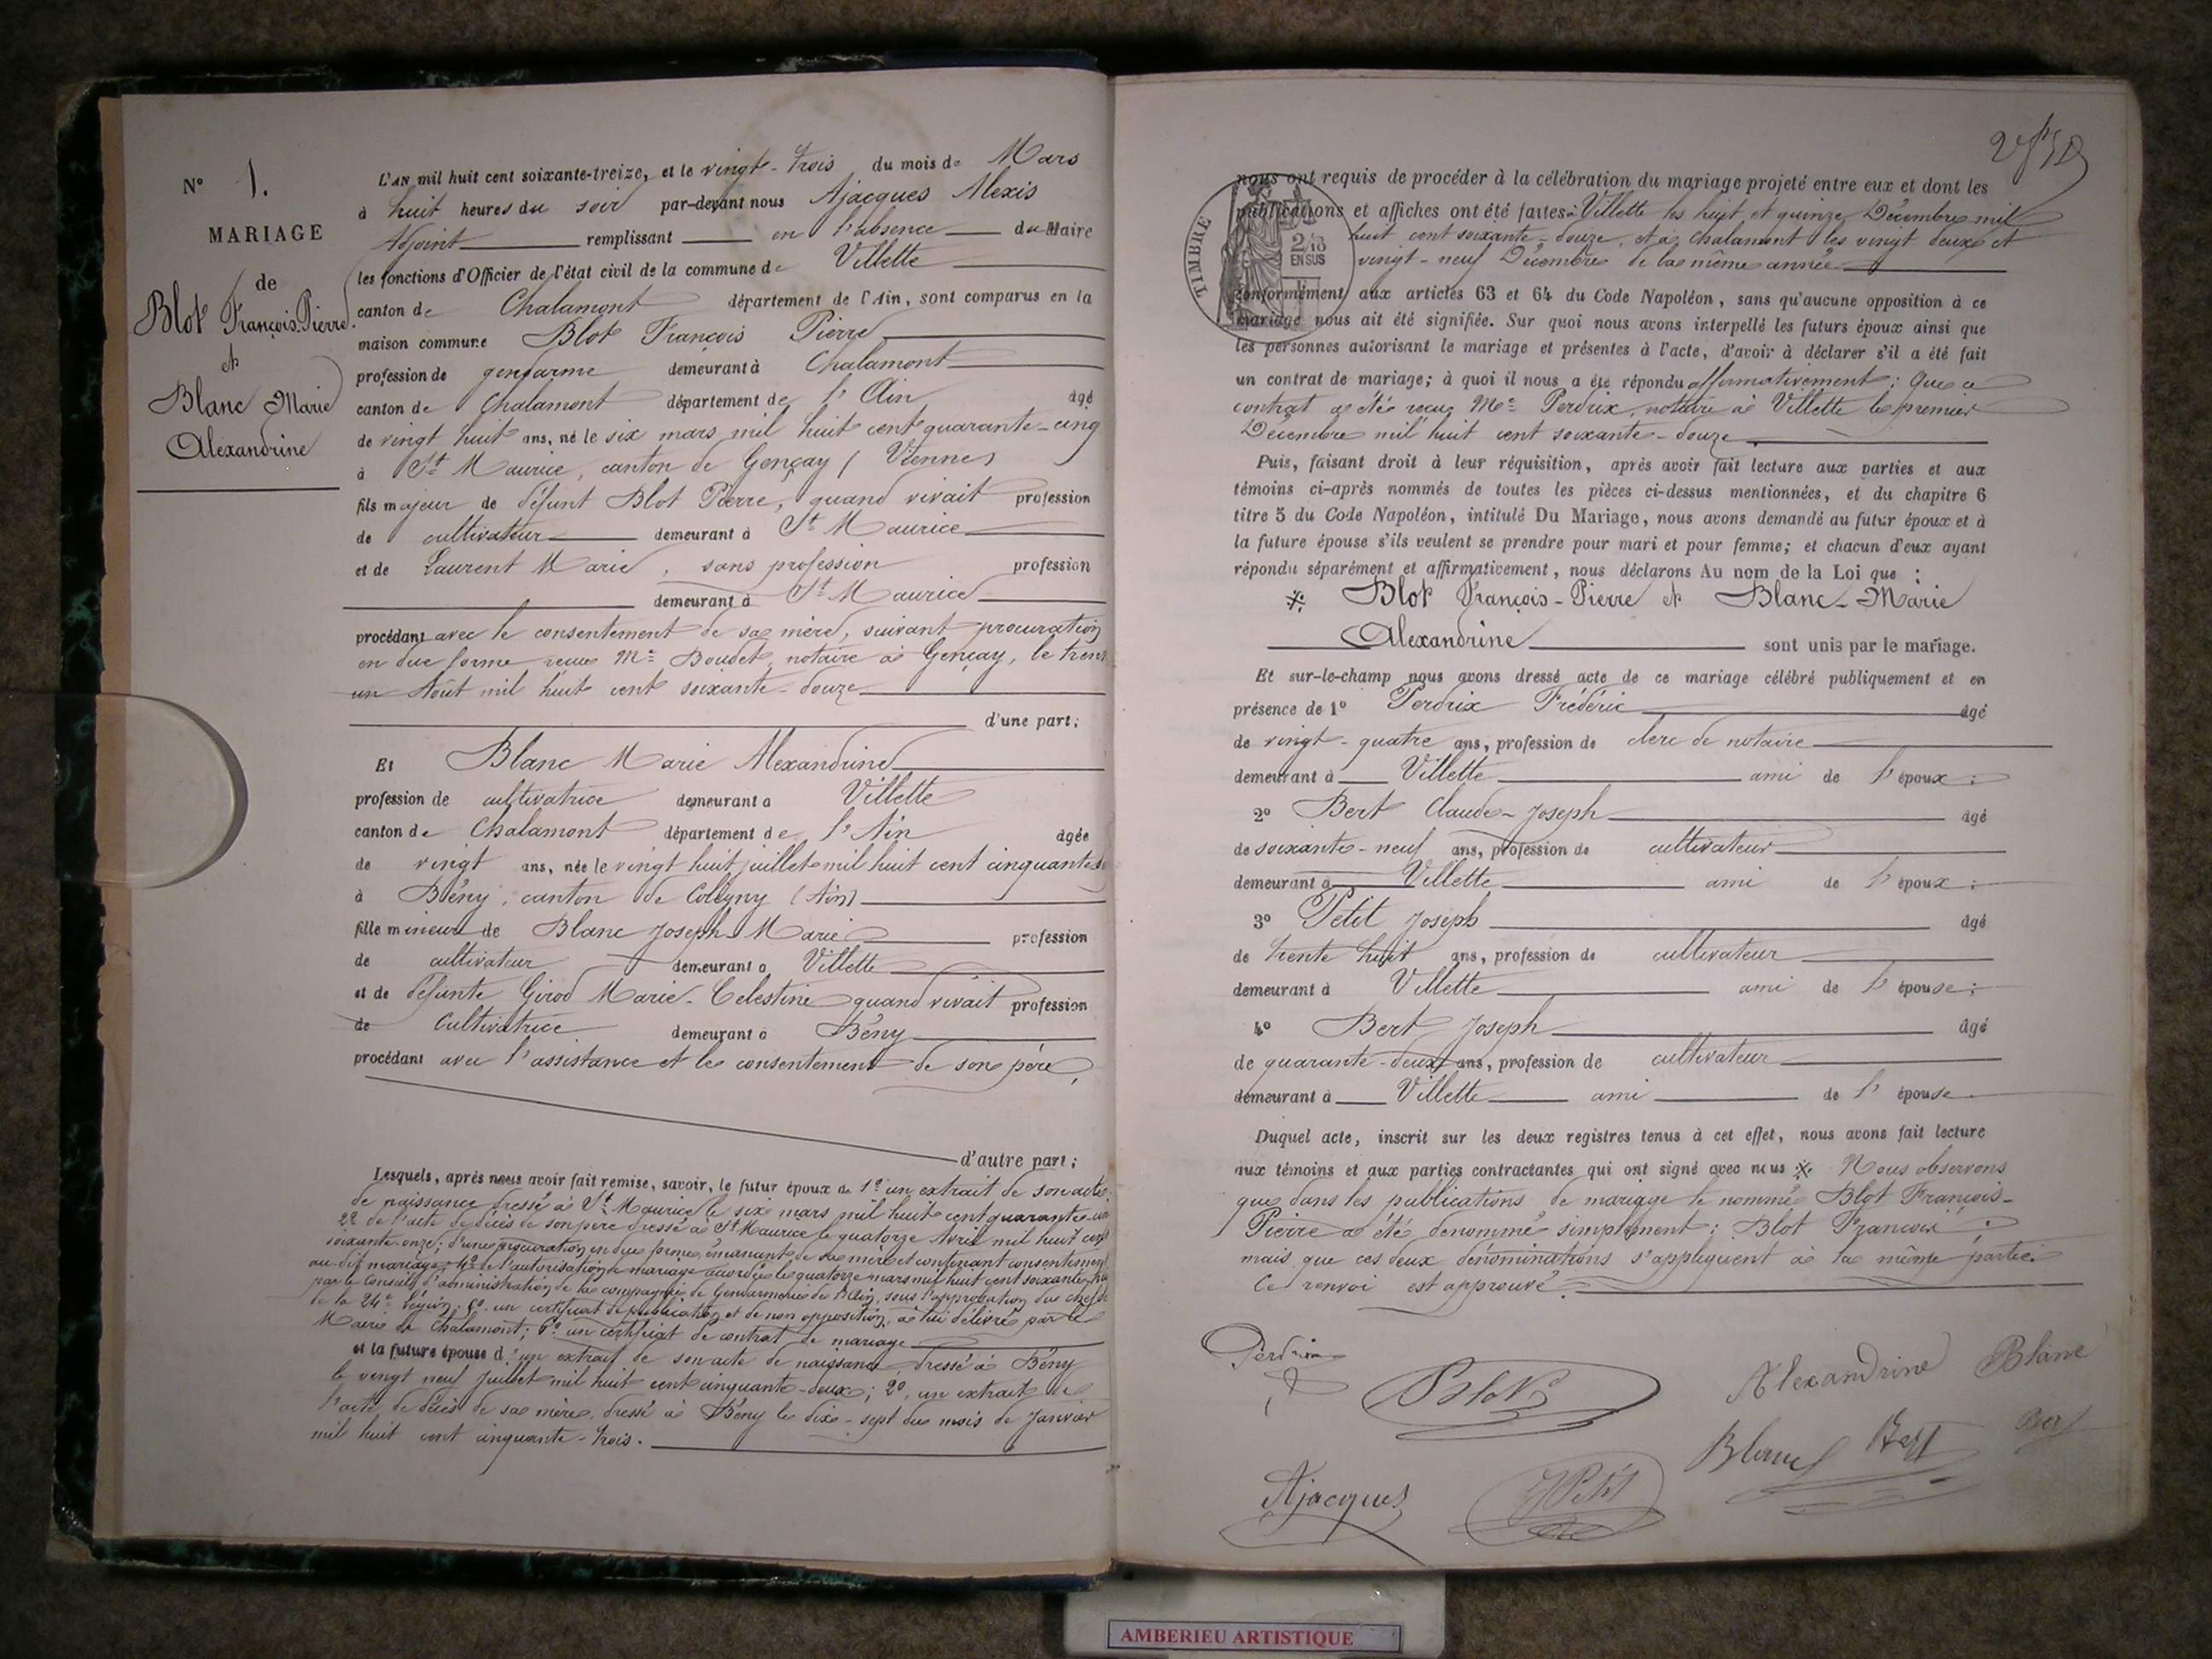 N° 1.
MARIAGE
de
Blot François Pierre
et
Blanc Marie
Alexandrine
L'AN mil huit cent soixante-treize, et le vingt-trois du mois de Mars
à huit heures du soir par-devant nous Ajacques Alexis
Adjoint remplissant en l'absence du Maire
les fonctions d'Officier de l'état civil de la commune de Villette
canton de Chalamont département de l'Ain, sont comparus en la
maison commune Blot François Pierre
profession de gendarme demeurant à Chalamont
canton de Chalamont département de l'Ain âgé
de vingt huit ans, né le six mars mil huit cent quarante-cinq
à St Maurice, canton de Gençay (Vienne)
fils majeur de défunt Blot Pierre, quand vivait profession
de cultivateur demeurant à St Maurice
et de Laurent Marie, sans profession profession
demeurant à St Maurice
procédant avec le consentement de sa mère, suivant procuration
en due forme reçue Me Boudet, notaire à Gençay, le trente
un Août mil huit cent soixante-douze
d'une part;
Et Blanc Marie Alexandrine
profession de cultivatrice demeurant à Villette
canton de Chalamont département de l'Ain âgée
de vingt ans, née le vingt huit juillet mil huit cent cinquante
à Bény, canton de Coligny (Ain)
fille mineure de Blanc Joseph Marie profession
de cultivateur demeurant à Villette
et de défunte Girod Marie-Celestine quand vivait profession
de Cultivatrice demeurant à Bény
procédant avec l'assistance et le consentement de son père,
d'autre part;
Lesquels, après nous avoir fait remise, savoir, le futur époux de 1° un extrait de son acte
de naissance dressé à St Maurice le six mars mil huit cent quarante-cinq
2° de l'acte de décès de son père dressé à St Maurice le quatorze Avril mil huit cent
soixante-onze; d'une procuration en due forme, émanant de sa mère et contenant consentement
au dit mariage; 4° de l'autorisation de mariage accordée le quatorze mars mil huit cent soixante-treize
par le Conseil d'administration de la compagnie de Gendarmerie de l'Ain, sous l'approbation du chef
de la 24e Légion; 5° un certificat de publication et de non opposition, à lui délivré par le
Maire de Chalamont; 6° un certificat de contrat de mariage
et la future épouse d'un extrait de son acte de naissance dressé à Bény
le vingt neuf Juillet mil huit cent cinquante-deux; 2° un extrait de
l'acte de décès de sa mère, dressé à Bény le dix-sept du mois de Janvier
mil huit cent cinquante-trois.
TIMBRE
2/10
EN SUS
nous ont requis de procéder à la célébration du mariage projeté entre eux et dont les
publications et affiches ont été faites à Villette les huit et quinze Décembre mil
huit cent soixante-douze, et à Chalamont les vingt deux et
vingt-neuf Décembre de la même année
conformément aux articles 63 et 64 du Code Napoléon, sans qu'aucune opposition à ce
mariage nous ait été signifiée. Sur quoi nous avons interpellé les futurs époux ainsi que
les personnes autorisant le mariage et présentes à l'acte, d'avoir à déclarer s'il a été fait
un contrat de mariage; à quoi il nous a été répondu affirmativement; Que ce
contrat a été reçu Me Perdrix, notaire à Villette le premier
Décembre mil huit cent soixante-douze
Puis, faisant droit à leur réquisition, après avoir fait lecture aux parties et aux
témoins ci-après nommés de toutes les pièces ci-dessus mentionnées, et du chapitre 6
titre 5 du Code Napoléon, intitulé Du Mariage, nous avons demandé au futur époux et à
la future épouse s'ils veulent se prendre pour mari et pour femme; et chacun d'eux ayant
répondu séparément et affirmativement, nous déclarons Au nom de la Loi que :
Blot François-Pierre et Blanc-Marie
Alexandrine sont unis par le mariage.
Et sur-le-champ nous avons dressé acte de ce mariage célébré publiquement et en
présence de 1° Perdrix Frédéric âgé
de vingt-quatre ans, profession de clerc de notaire
demeurant à Villette ami de l'époux;
2° Bert Claude-Joseph âgé
de soixante-neuf ans, profession de cultivateur
demeurant à Villette ami de l'époux;
3° Petit Joseph âgé
de trente huit ans, profession de cultivateur
demeurant à Villette ami de l'épouse;
4° Bert Joseph âgé
de quarante-deux ans, profession de cultivateur
demeurant à Villette ami de l'épouse
Duquel acte, inscrit sur les deux registres tenus à cet effet, nous avons fait lecture
aux témoins et aux parties contractantes qui ont signé avec nous Nous observons
que dans les publications de mariage le nommé Blot François-
Pierre a été dénommé simplement: Blot François;
mais que ces deux dénominations s'appliquent à la même partie.
Ce renvoi est approuvé.
Perdrix
Blot
Alexandrine Blanc
Blanc Bert Bert
Ajacques
J Petit
AMBERIEU ARTISTIQUE